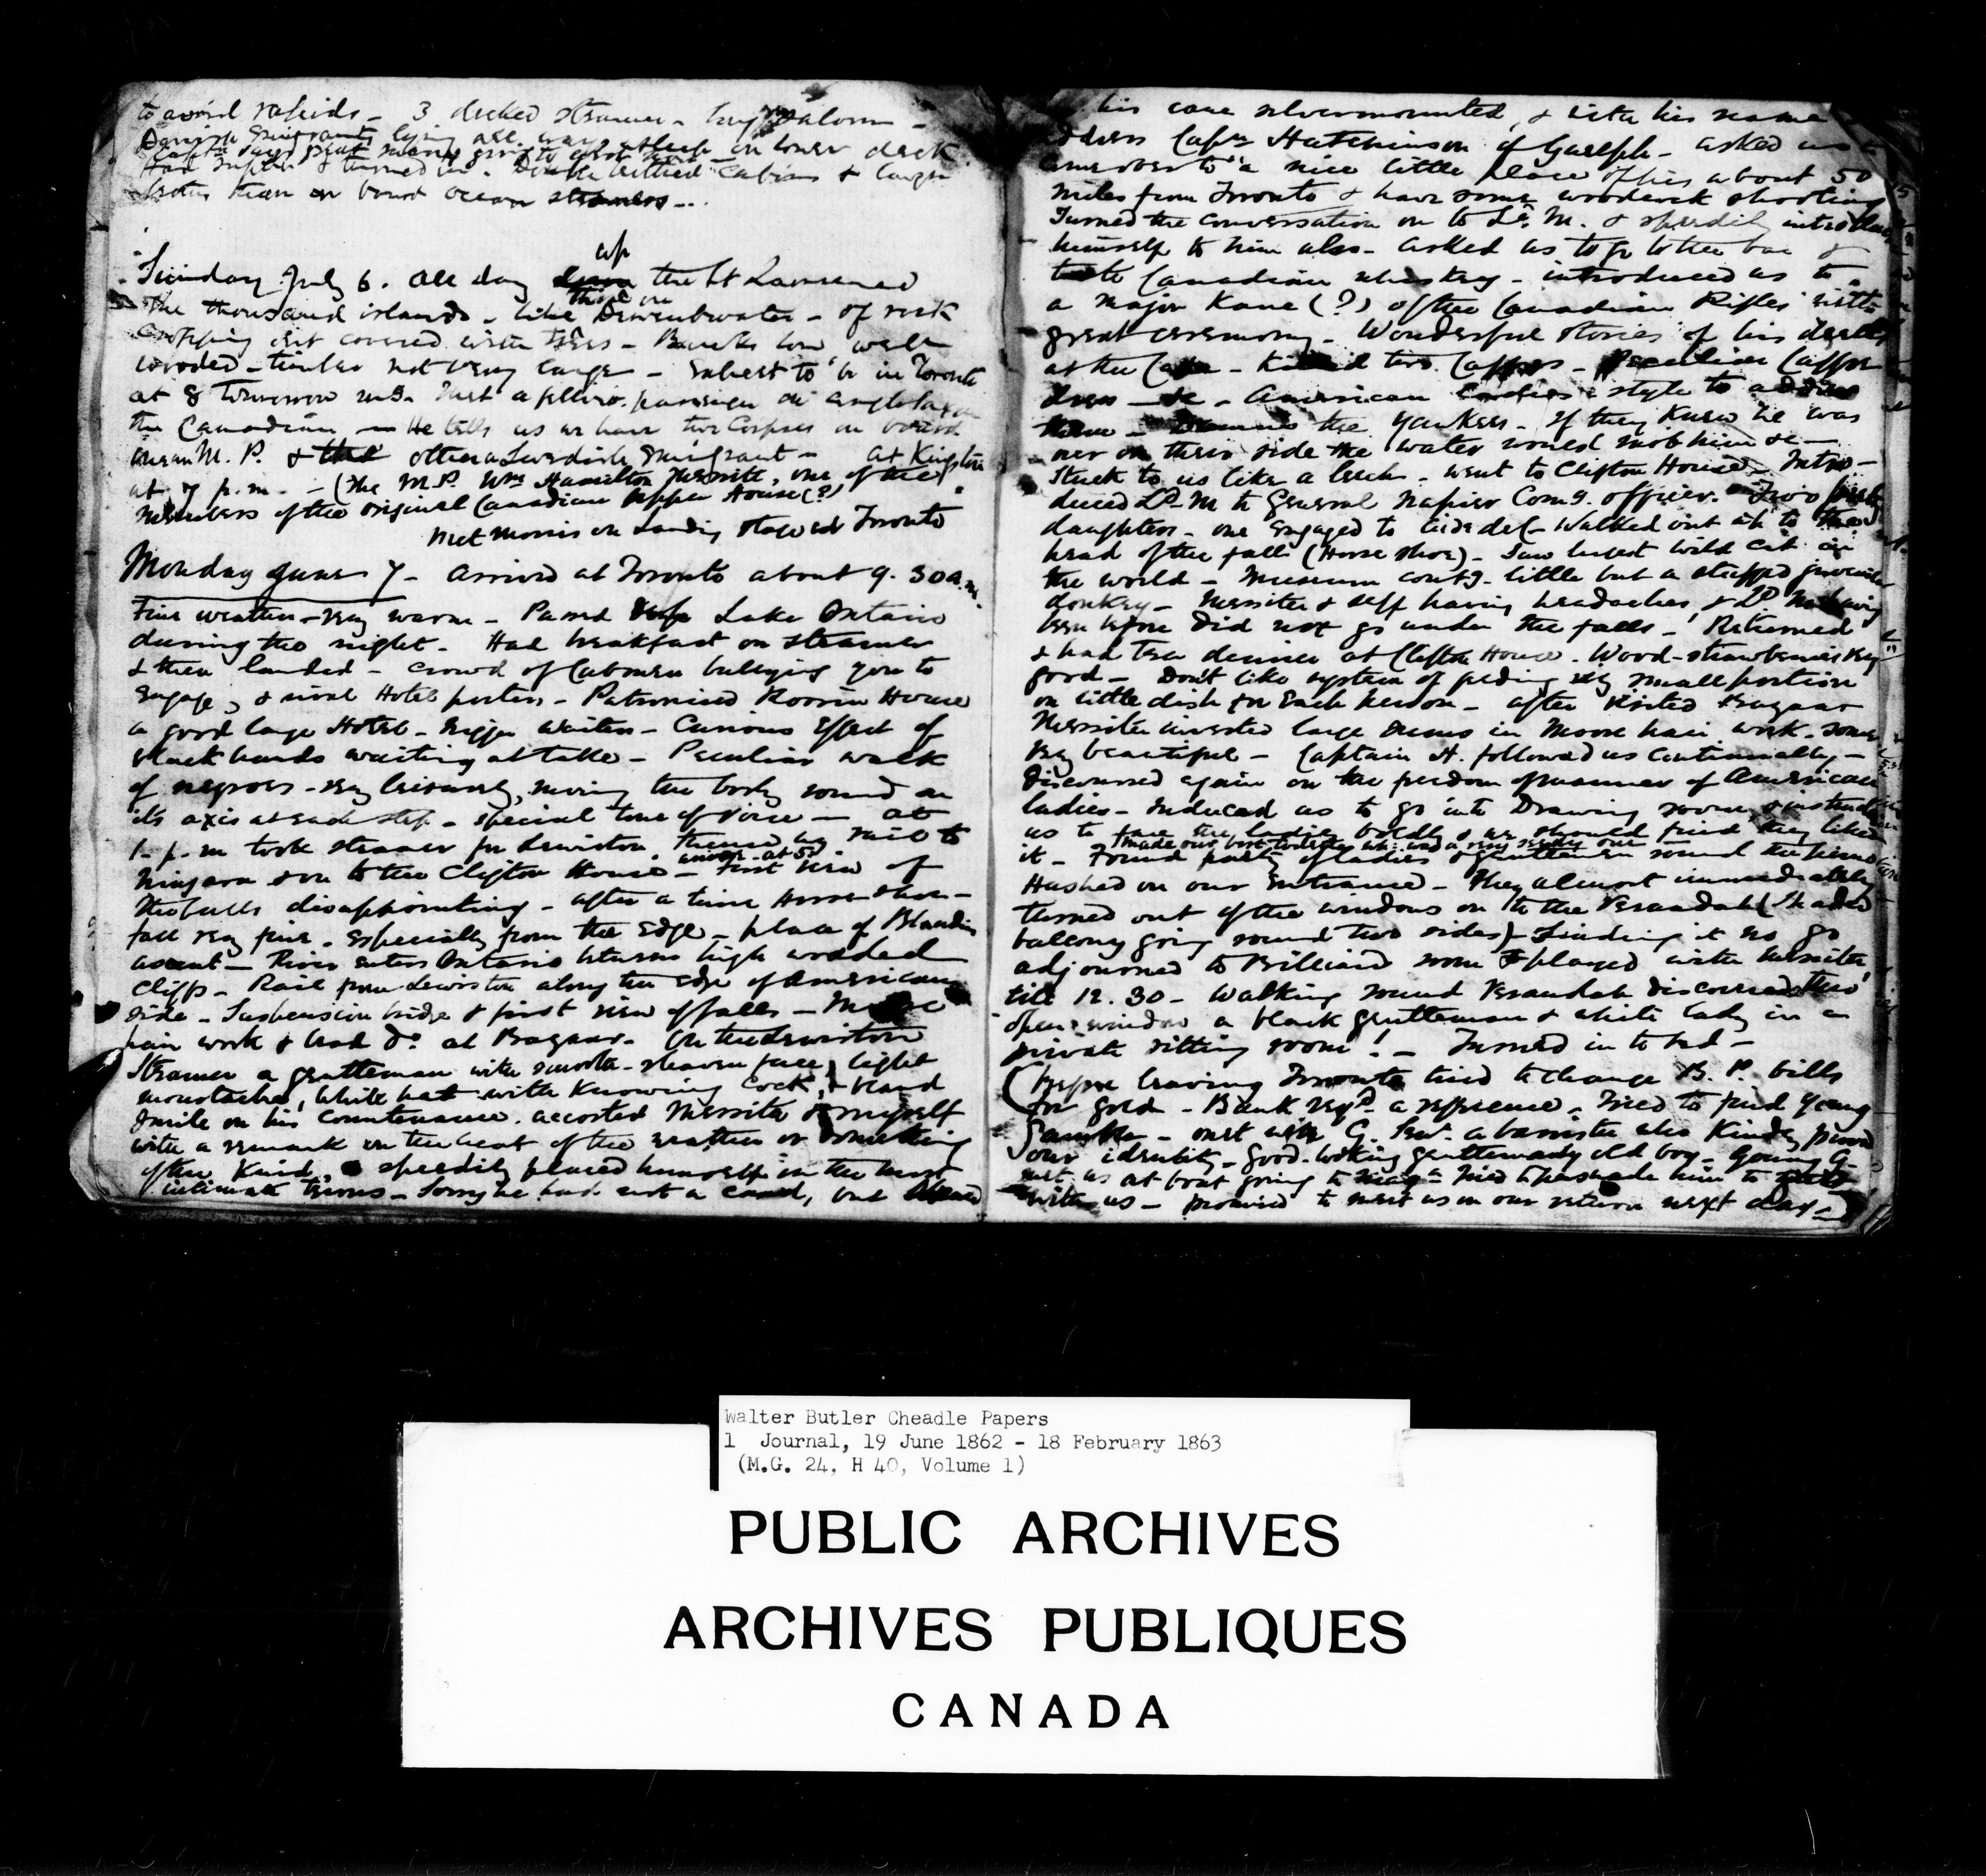 to avoid rapids - 3 decked steamer - huge saloon -
Danish Emigrants lying all way asleep on lower deck.
Had supper & turned in. Double bedded cabins & larger
than on board ocean steamers -..
Sunday July 6. All day up the St Lawrence
the thousand islands - like those on Derwentwater - of rock
cropping out covered with trees - Banks low well
wooded - timber not very large - Expect to be in Toronto
at 8 tomorrow mg. Met a fellow passenger on Anglo Saxon
the Canadian - He tells us we have two Corpses on board
one an M.P. & the other a Swedish Emigrant - At Kingston
at 7 p.m. - (The M.P. Wm Hamilton Merritt, one of the
Members of the original Canadian Upper House (?)
Met Morris on Landing stage at Toronto
Monday June 7 - Arrived at Toronto about 9.30 a.m.
Fine weather - very warm - Passed up Lake Ontario
during the night. Had breakfast on steamer
& then landed - crowd of Cabmen bullying you to
engage, & rival Hotel porters - Patronised Rossin House
a good large Hotel - Nigger Waiters - Curious Effect of
black hands waiting at table - Peculiar walk
of negroes - very leisurely, moving the body round on
its axis at each step - special tone of voice - At
1. p.m took steamer for Lewiston, thence by rail to
Niagara & on to the Clifton House - arrivg. at 5. First view of
the falls disappointing - after a time Horse shoe -
fall very fine. Especially from the Edge - place of Blondin's
ascent - River enters Ontario between high wooded
Cliffs - Rail from Lewiston along the edge of American
side - Suspension bridge & first view of falls - Moose
hair work & bead Do. at Bazaar. On the Lewiston
Steamer a gentleman with smooth-shaven face, light
moustache, white hat with knowing cock, & bland
smile on his countenance accosted Messiter & myself
with a remark on the heat of the weather or something
of the kind, & speedily placed himself in the most
intimate terms - Sorry he had not a card, but showed
his cane silvermounted, & with his name
address Captn Hutchinson of Guelph - asked us to
come over to a nice little place of his about 50
miles from Toronto & have some woodcock shooting
Turned the conversation on to Ld. M. & speedily introduced
himself to him also - asked us to go to the bar &
taste Canadian whiskey - introduced us to
a Major Kane (?) of the Canadian Rifles with
great ceremony - Wonderful stories of his deeds
at the Cape - Killed two Caffres - Peculiar Caffre
dress - &c - American ladies & style to address
them - Damns the Yankees - if they knew he was
now on their side the water would mob him &c -
Stuck to us like a leech - went to Clifton House - Intro-
duced Ld. M to General Napier Comg. officer. Two
daughters - one engaged to - Walked out all to the
head of the falls (Horse shoe) - Saw largest wild cat in
the world - Museum contg. little but a stuffed
donkey - Messiter & self having headaches & Ld. M. having
been before did not go under the falls - Returned
& had tea dinner at Clifton House. Wood-strawberries very
good - Don't like system of feeding very small portion
on little dish for each person - After visited Bazaar
Messiter invested large sums in Moose hair work - some
very beautiful - Captain H. followed us continually -
discoursed again on the freedom of manner of American
ladies - Induced us to go into Drawing room, & instructed
us to face the ladies boldly & we should find they liked
made our best wh. was a very seedy one
it - Found party of ladies & gentlemen round the piano
Hushed on our entrance - They almost immediately
turned out of the windows on to the Verandah (shaded
balcony going round two sides) - Finding it no go
adjourned to Billiard room & played with Messiter
till 12.30 - Walking round Verandah discovered thro'
open window a black gentleman & white lady in a
private sitting room! - Turned in to bed -
(Before leaving Toronto tried to change B.P. bills
for gold - Bank reqd. a reference - Tried to find Young
Gamble - met with G. Senr. a barrister who kindly proved
our identity - good-looking gentlemanly old boy - Young G.
met us at boat going to Niaga. - Tried to persuade him to
with us - promised to meet us on our return next day -)
Walter Butler Cheadle Papers
1 Journal, 19 June 1862 - 18 February 1863
(M.G. 24, H 40, Volume 1)
PUBLIC ARCHIVES
ARCHIVES PUBLIQUES
CANADA